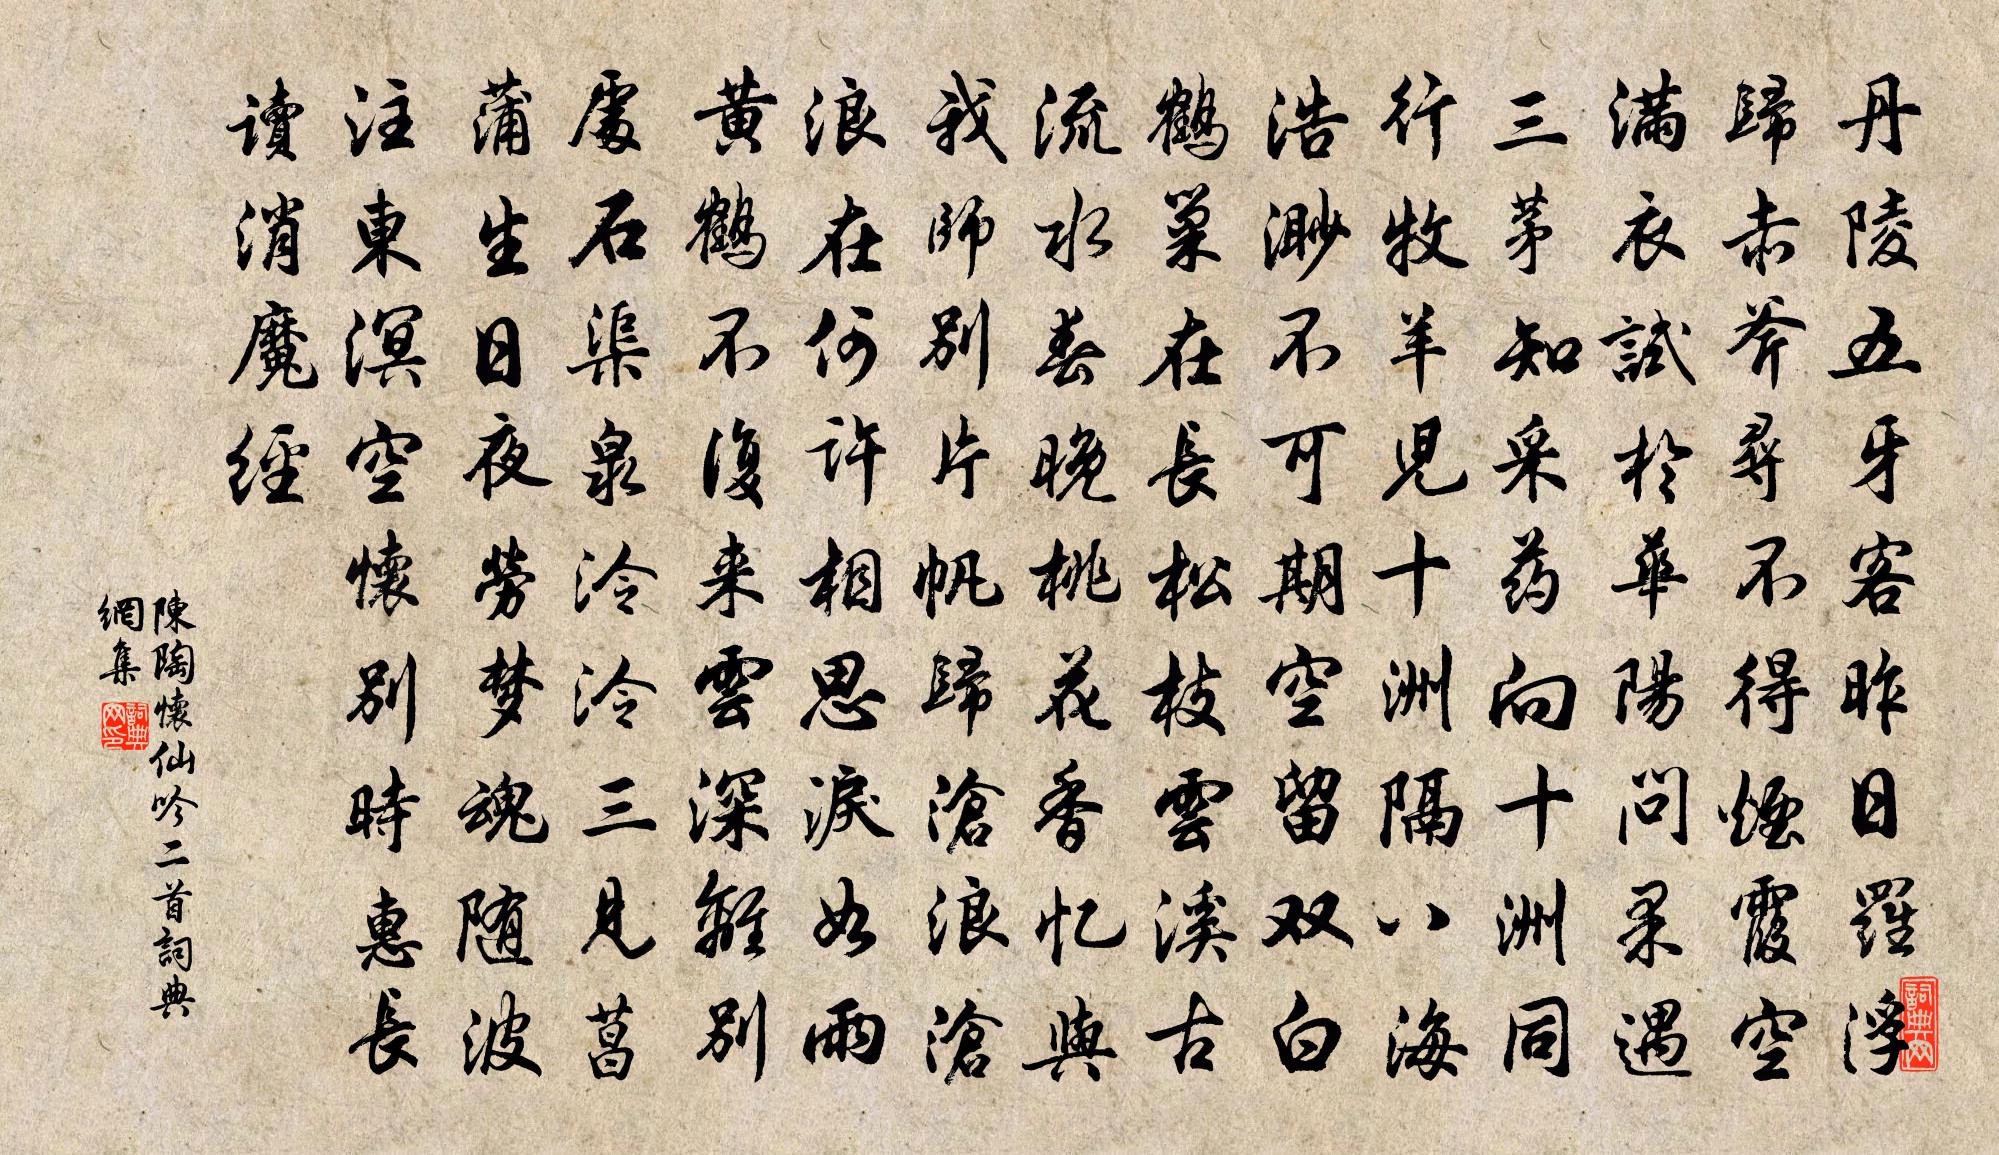 丹陵五牙客昨日羅浮
歸赤斧尋不得煙霞空
滿衣試於華陽問果遇
三茅知采药向十洲同
行牧羊兒十洲隔八海
浩渺不可期空留双白
鶴巢在長松枝雲溪古
流水春晚桃花香忆與
我師別片帆歸滄浪滄
浪在何許相思淚如雨
黃鶴不復来雲深離別
處石渠泉泠泠三見菖
蒲生日夜勞梦魂随波
注東溟空懷別時惠長
讀消魔經
陳陶懷仙吟二首詞典
網集
詞典网
詞典网印